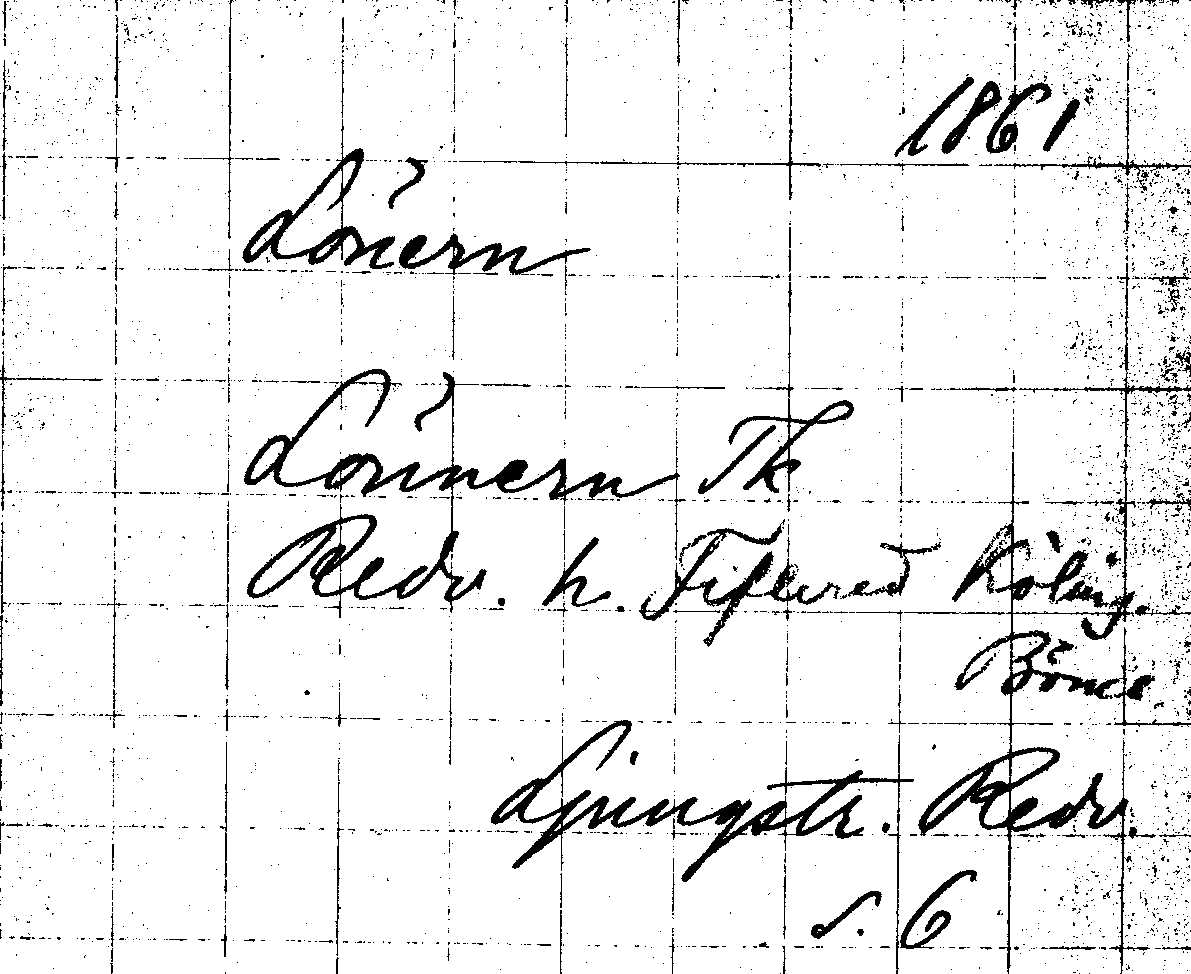 1861
Lönern
Lönnern Tk
Redv. h. Fiflered Köling.
Böne
Ljungstr. Redv.
s. 6